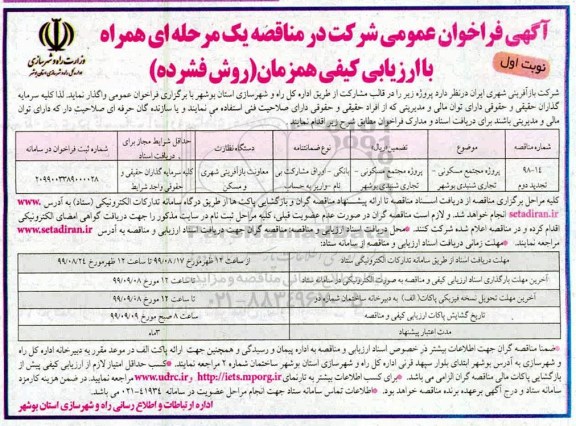 آگهی فراخوان عمومی شرکت در مناقصه یک مرحله ای همراه
با ارزیابی کیفی همزمان (روش فشرده)
وزارت راه و شهرسازی
نوبت اول
شرکت بازآفرینی شهری ایران درنظر دارد پروژه زیر را در قالب مشارکت از طریق اداره کل راه و شهرسازی استان بوشهر با برگزاری فراخوان عمومی واگذار نماید. لذا کلیه سرمایه
گذاران حقیقی و حقوقی دارای توان مالی و مدیریتی که از افراد حقیقی و حقوقی دارای صلاحیت فنی استفاده می نمایند و یا سازنده گان حرفه ای صلاحیت دار که دارای توان
مالی و مدیریتی باشند برای دریافت اسناد و مدارک فراخوان مطابق شرح زیر اقدام نمایند.
شماره مناقصه موضوع تضمین-ریال نوع ضمانتنامه دستگاه نظارت حداقل شرایط مجاز برای دریافت اسناد شماره ثبت فراخوان در سامانه
۹۸-۱۴ تجدید دوم پروژه مجتمع مسکونی - تجاری شنبدی بوشهر پروژه مجتمع مسکونی - تجاری شنبدی بوشهر بانکی - اوراق مشارکت بی نام - واریز به حساب معاونت بازآفرینی شهری و مسکن کلیه سرمایه گذاران حقیقی و حقوقی واجد شرایط ۲۰۹۹۰۰۳۳۸۹۰۰۰۰۲۸
کلیه مراحل برگزاری مناقصه از دریافت اسناد مناقصه تا ارائه پیشنهاد مناقصه گران و بازگشایی پاکت ها از طریق درگاه سامانه تدارکات الکترونیکی (ستاد) به آدرس www.
setadiran.ir انجام خواهد شد. و لازم است مناقصه گران در صورت عدم عضویت قبلی، کلیه مراحل ثبت نام در سایت مذکور را جهت دریافت گواهی امضای الکترونیکی
اقدام کرده و در مناقصه اعلام شده شرکت کنند *محل دریافت اسناد ارزیابی و مناقصه: مناقصه گران جهت دریافت اسناد ارزیابی و مناقصه به آدرس www.setadiran.ir
مراجعه نمایند. *مهلت زمانی دریافت اسناد ارزیابی و مناقصه از سامانه ستاد:
مهلت دریافت اسناد از طریق سامانه تدارکات الکترونیکی ستاد از ساعت ۱۴ ظهر مورخ ۹۹/۰۸/۱۷ تا ساعت ۱۲ ظهر مورخ ۹۹/۰۸/۲۴
آخرین مهلت بارگذاری اسناد ارزیابی کیفی و مناقصه به صورت الکترونیکی در سامانه ستاد تا ساعت ۱۲ ظهر مورخ ۹۹/۰۹/۰۸
آخرین مهلت تحویل نسخه فیزیکی پاکات (الف) به دبیرخانه ساختمان شماره دو تا ساعت ۱۲ ظهر مورخ ۹۹/۰۹/۰۸
تاریخ گشایش پاکات ارزیابی کیفی و مناقصه ساعت ۸ صبح مورخ ۹۹/۰۹/۰۹
مدت اعتبار پیشنهاد ۳ماه
*ضمنا مناقصه گران جهت اطلاعات بیشتر در خصوص اسناد ارزیابی و مناقصه به اداره پیمان و رسیدگی و همچنین جهت ارائه پاکت الف در موعد مقرر به دبیرخانه اداره کل راه
و شهرسازی به آدرس بوشهر ابتدای بلوار سپهبد قرنی اداره کل راه و شهرسازی استان بوشهر ساختمان شماره ۲ مراجعه نمایند. *کسب حداقل امتیاز لازم از ارزیابی کیفی پیش از
بازگشایی پاکات مالی مناقصه گران الزامی می باشد. *برای کسب اطلاعات بیشتر به تارنمای http://iets.mporg.ir و www.udrc.ir مراجعه نمایید. در ضمن هزینه کارمزد
سامانه ستاد و درج آگهی برعهده برنده مناقصه خواهد بود. *اطلاعات تماس سامانه ستاد جهت انجام مراحل عضویت در سامانه ۴۱۹۳۴-۰۲۱ می باشد.
اداره ارتباطات و اطلاع رسانی راه و شهرسازی استان بوشهر